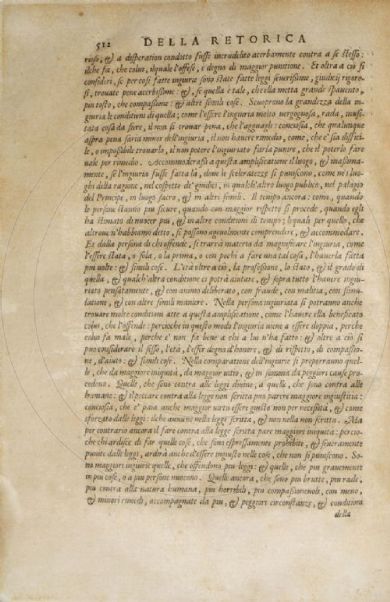 512 DELLA RETORICA
rioso, & a disperation condotto fusse incrudelito acerbamente contra a se stesso:
ilche fa, che colui, ilquale l'offese, è degno di maggior punitione. Et oltra a ciò si
consideri, se per cosi fatte ingiurie sono state fatte leggi seuerissime, giudicij rigoro-
si, trouate pene acerbissime: &, se quella è tale, che ella metta grande spauento,
piu tosto, che compassione: & altre simili cose. Scuoprono la grandezza della in-
giuria le conditioni di quella; come l'essere l'ingiuria molto vergognosa, rada, inusi-
tata cosa da fiere, il non si trouar pena, che l'agguagli: conciosia, che qualunque
aspra pena saria minor dell'ingiuria, il non hauere rimedio, come, che è sia diffici-
le, o impossibile trouarlo, il non potere l'ingiuriato farla punire, che il poterlo fare
vale per rimedio. Accommoderassi a questa amplificatione il luogo, & massima-
mente, se l'ingiuria fusse fatta la, doue le sceleratezze si puniscono, come ne i luo-
ghi della ragione, nel cospetto de' giudici, in qualch'altro luogo publico, nel palagio
del Principe, in luogo sacro, & in altri simili. Il tempo ancora: come, quando
le persone stanno piu sicure, quando con maggior rispetto si procede, quando egli
ha stimato di nuocer piu, & in altre conditioni di tempo; lequali per quello, che
altroue n'habbiamo detto, si possono ageuolmente comprendere, & accommodare.
Et dalla persona di chi offende, si trarrà materia da magnificare l'ingiuria, come
l'essere stata, o sola, o la prima, o con pochi a fare una tal cosa, l'hauerla fatta
piu uolte: & simili cose. L'età oltre a ciò, la professione, lo stato, & il grado di
quella, & qualch'altra conditione ci potrà aiutare, & sopra tutto l'hauere ingiu-
riato pensatamente, & con animo deliberato, con fraude, con malitia, con simu-
latione, & con altre simili maniere. Nella persona ingiuriata si potranno anche
trouare molte conditioni atte a questa amplificatione, come l'hauere ella beneficato
colui, che l'offende: percioche in questo modo l'ingiuria uiene a essere doppia, perche
colui fa male, perche e' non fa bene a chi a lui n'ha fatto: & oltre a ciò si
può considerare il sesso, l'età, l'esser degna d'honore, & di rispetto, di compassio-
ne, d'aiuto: & simili cose. Nella comparatione dell'ingiurie si preporranno quel-
le, che da maggiore iniquità, da maggior uitio, & in somma da peggiori cause pro-
cedono. Quelle, che sono contra alle leggi diuine, a quelle, che sono contra alle
humane: & il peccare contra alla legge non scritta può parere maggiore ingiustitia:
conciosia, che e' paia anche maggior uirtù essere giusto non per necessità, & come
sforzato dalle leggi: ilche auuiene nella legge scritta, & non nella non scritta. Ma
per contrario ancora il fare contra alla legge scritta pare maggiore iniquità: percio-
che chi ardisce di far quelle cose, che sono espressamente prohibite, & seueramente
punite dalle leggi, ardirà anche d'essere ingiusto nelle cose, che non si puniscono. So-
no maggiori ingiurie quelle, che offendono piu leggi: & quelle, che piu grauemente
in piu cose, o a piu persone nuocono. Quelle ancora, che sono piu brutte, piu rade,
piu contra alla natura humana, piu horribili, piu compassioneuoli, con meno,
& minori rimedi, accompagnate da piu, & peggiori circonstanze, & conditioni
della